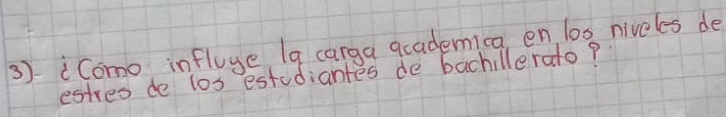 3)- ¿Como influye la carga academica en los niveles de
estres de los estudiantes de bachillerato?